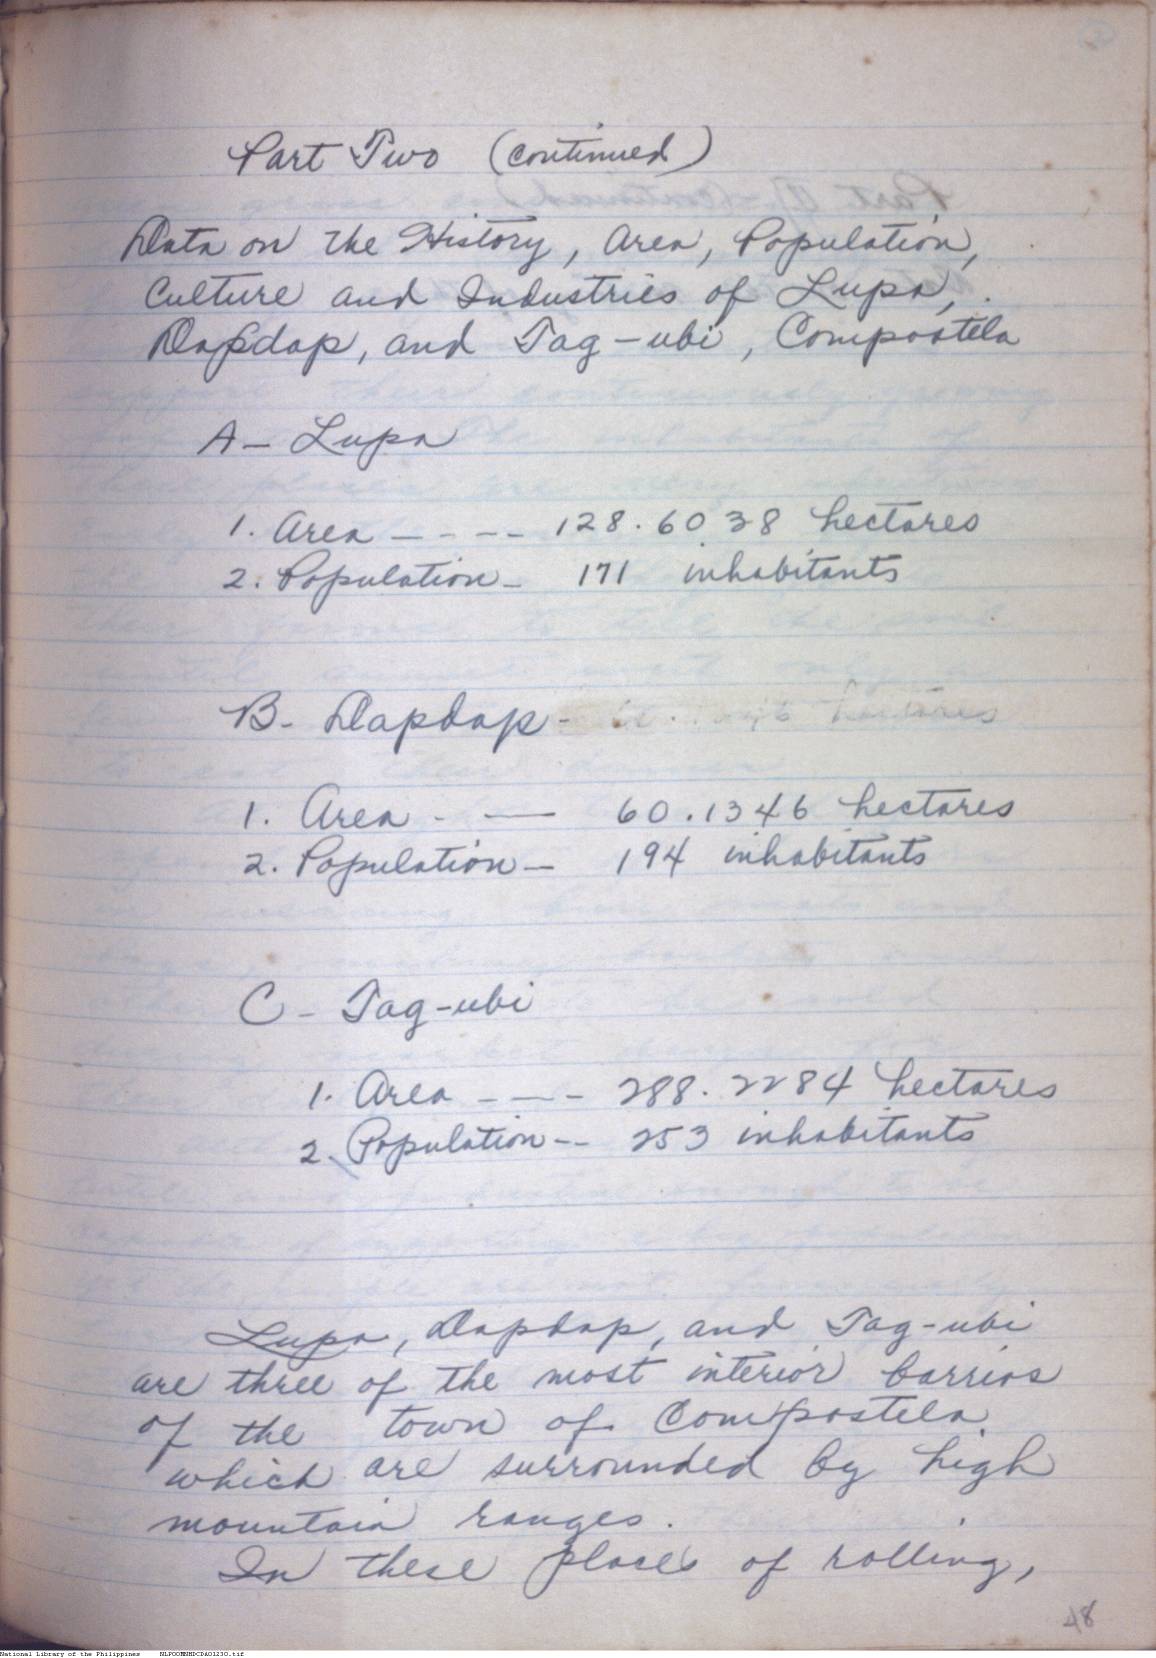 Part Two (continued)
Data on the History, Area, Population,
Culture and Industries of Lupa,
Dapdap, and Tag-ubi, Compostela
A - Lupa
1. Area ---- 128.6038 hectares
2. Population - 171 inhabitants
B - Dapdap - hectares
1. Area - — 60.1346 hectares
2. Population - 194 inhabitants
C - Tag-ubi
1. Area ---- 288.2284 hectares
2. Population -- 253 inhabitants
Lupa, Dapdap, and Tag-ubi
are three of the most interior barrios
of the town of Compostela
which are surrounded by high
mountain ranges.
In these places of rolling,
48
National Library of the Philippines NLPOOMNHDCDA01230.tif